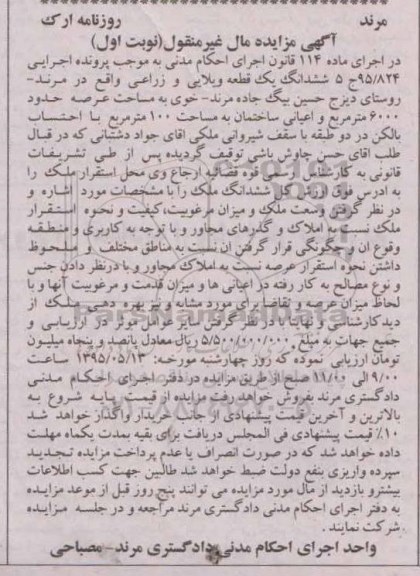 مرند روزنامه ارک
آگهی مزایده مال غیرمنقول(نوبت اول)
در اجرای ماده ۱۱۴ قانون اجرای احکام مدنی به موجب پرونده اجرایی
۹۵/۸۲۴ج ۵ ششدانگ یک قطعه ویلایی و زراعی واقع در مرند-
روستای دیزج حسین بیگ جاده مرند- خوی به مساحت عرصه حدود
۶۰۰۰ مترمربع و اعیانی ساختمان به مساحت ۱۰۰ مترمربع با احتساب
بالکن در دو طبقه با سقف شیروانی ملکی آقای جواد دشتبانی که در قبال
طلب آقای حسن چاوش باشی توقیف گردیده پس از طی تشریفات
قانونی به کارشناس رسمی قوه قضائیه ارجاع وی محل استقرار ملک را
به آدرس فوق ارزش کل ششدانگ ملک را با مشخصات مورد اشاره و
در نظر گرفتن وسعت ملک و میزان مرغوبیت،کیفیت و نحوه استقرار
ملک نسبت به املاک و گذرهای مجاور و با توجه به کاربری و منطقه
وقوع آن و چگونگی قرار گرفتن آن نسبت به مناطق مختلف و ملحوظ
داشتن نحوه استقرار عرصه نسبت به املاک مجاور و با درنظر دادن جنس
و نوع مصالح به کار رفته در اعیانی ها و میزان قدمت و مرغوبیت آنها و با
لحاظ میزان عرضه و تقاضا برای مورد مشابه و نیز بهره دهی ملک از
دید کارشناسی و نهایتا با در نظر گرفتن سایر عوامل موثر در ارزیابی و
جمیع جهات به مبلغ ۵/۵۰۰/۰۰۰/۰۰۰ ریال معادل پانصد و پنجاه میلیون
تومان ارزیابی نموده که روز چهارشنبه مورخه: ۱۳۹۵/۰۵/۱۳ ساعت
۹/۰۰ الی ۱۱/۰۰ صبح از طریق مزایده در دفتر اجرای احکام مدنی
دادگستری مرند بفروش خواهد رفت مزایده از قیمت پایه شروع به
بالاترین و آخرین قیمت پیشنهادی از جانب خریدار واگذار خواهد شد
۱۰٪ قیمت پیشنهادی فی المجلس دریافت برای بقیه بمدت یکماه مهلت
داده خواهد شد که در صورت انصراف یا عدم پرداخت مزایده تجدید
سپرده واریزی بنفع دولت ضبط خواهد شد طالبین جهت کسب اطلاعات
بیشترو بازدید از مال مورد مزایده می توانند پنج روز قبل از موعد مزایده
به دفتر اجرای احکام مدنی دادگستری مرند مراجعه و در جلسه مزایده
شرکت نمایند .
واحد اجرای احکام مدنی دادگستری مرند- مصباحی